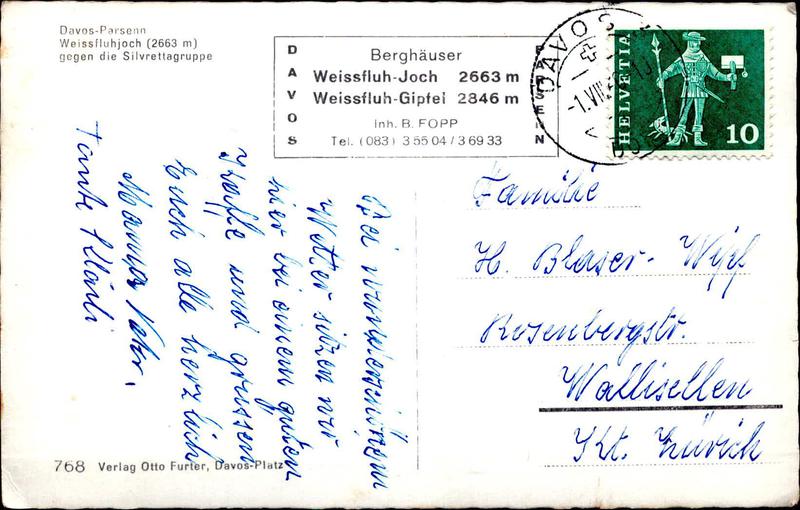 Davos-Parsenn
Weissfluhjoch (2663 m)
gegen die Silvrettagruppe
DAVOS
Berghäuser
Weissfluh-Joch 2663 m
Weissfluh-Gipfel 2846 m
Inh. B. FOPP
Tel. (083) 3 55 04 / 3 69 33
PARSENN
DAVOS
-1.VIII.
HELVETIA
10
Bei wunderschönem
Wetter sitzen wir
hier bei einem guten
Kaffe und grüssen
Euch alle herzlich
Mama
Tante Klärli
Familie
H. Blaser-Wipf
Rosenbergstr.
Wallisellen
Kt. Zürich
768 Verlag Otto Furter, Davos-Platz